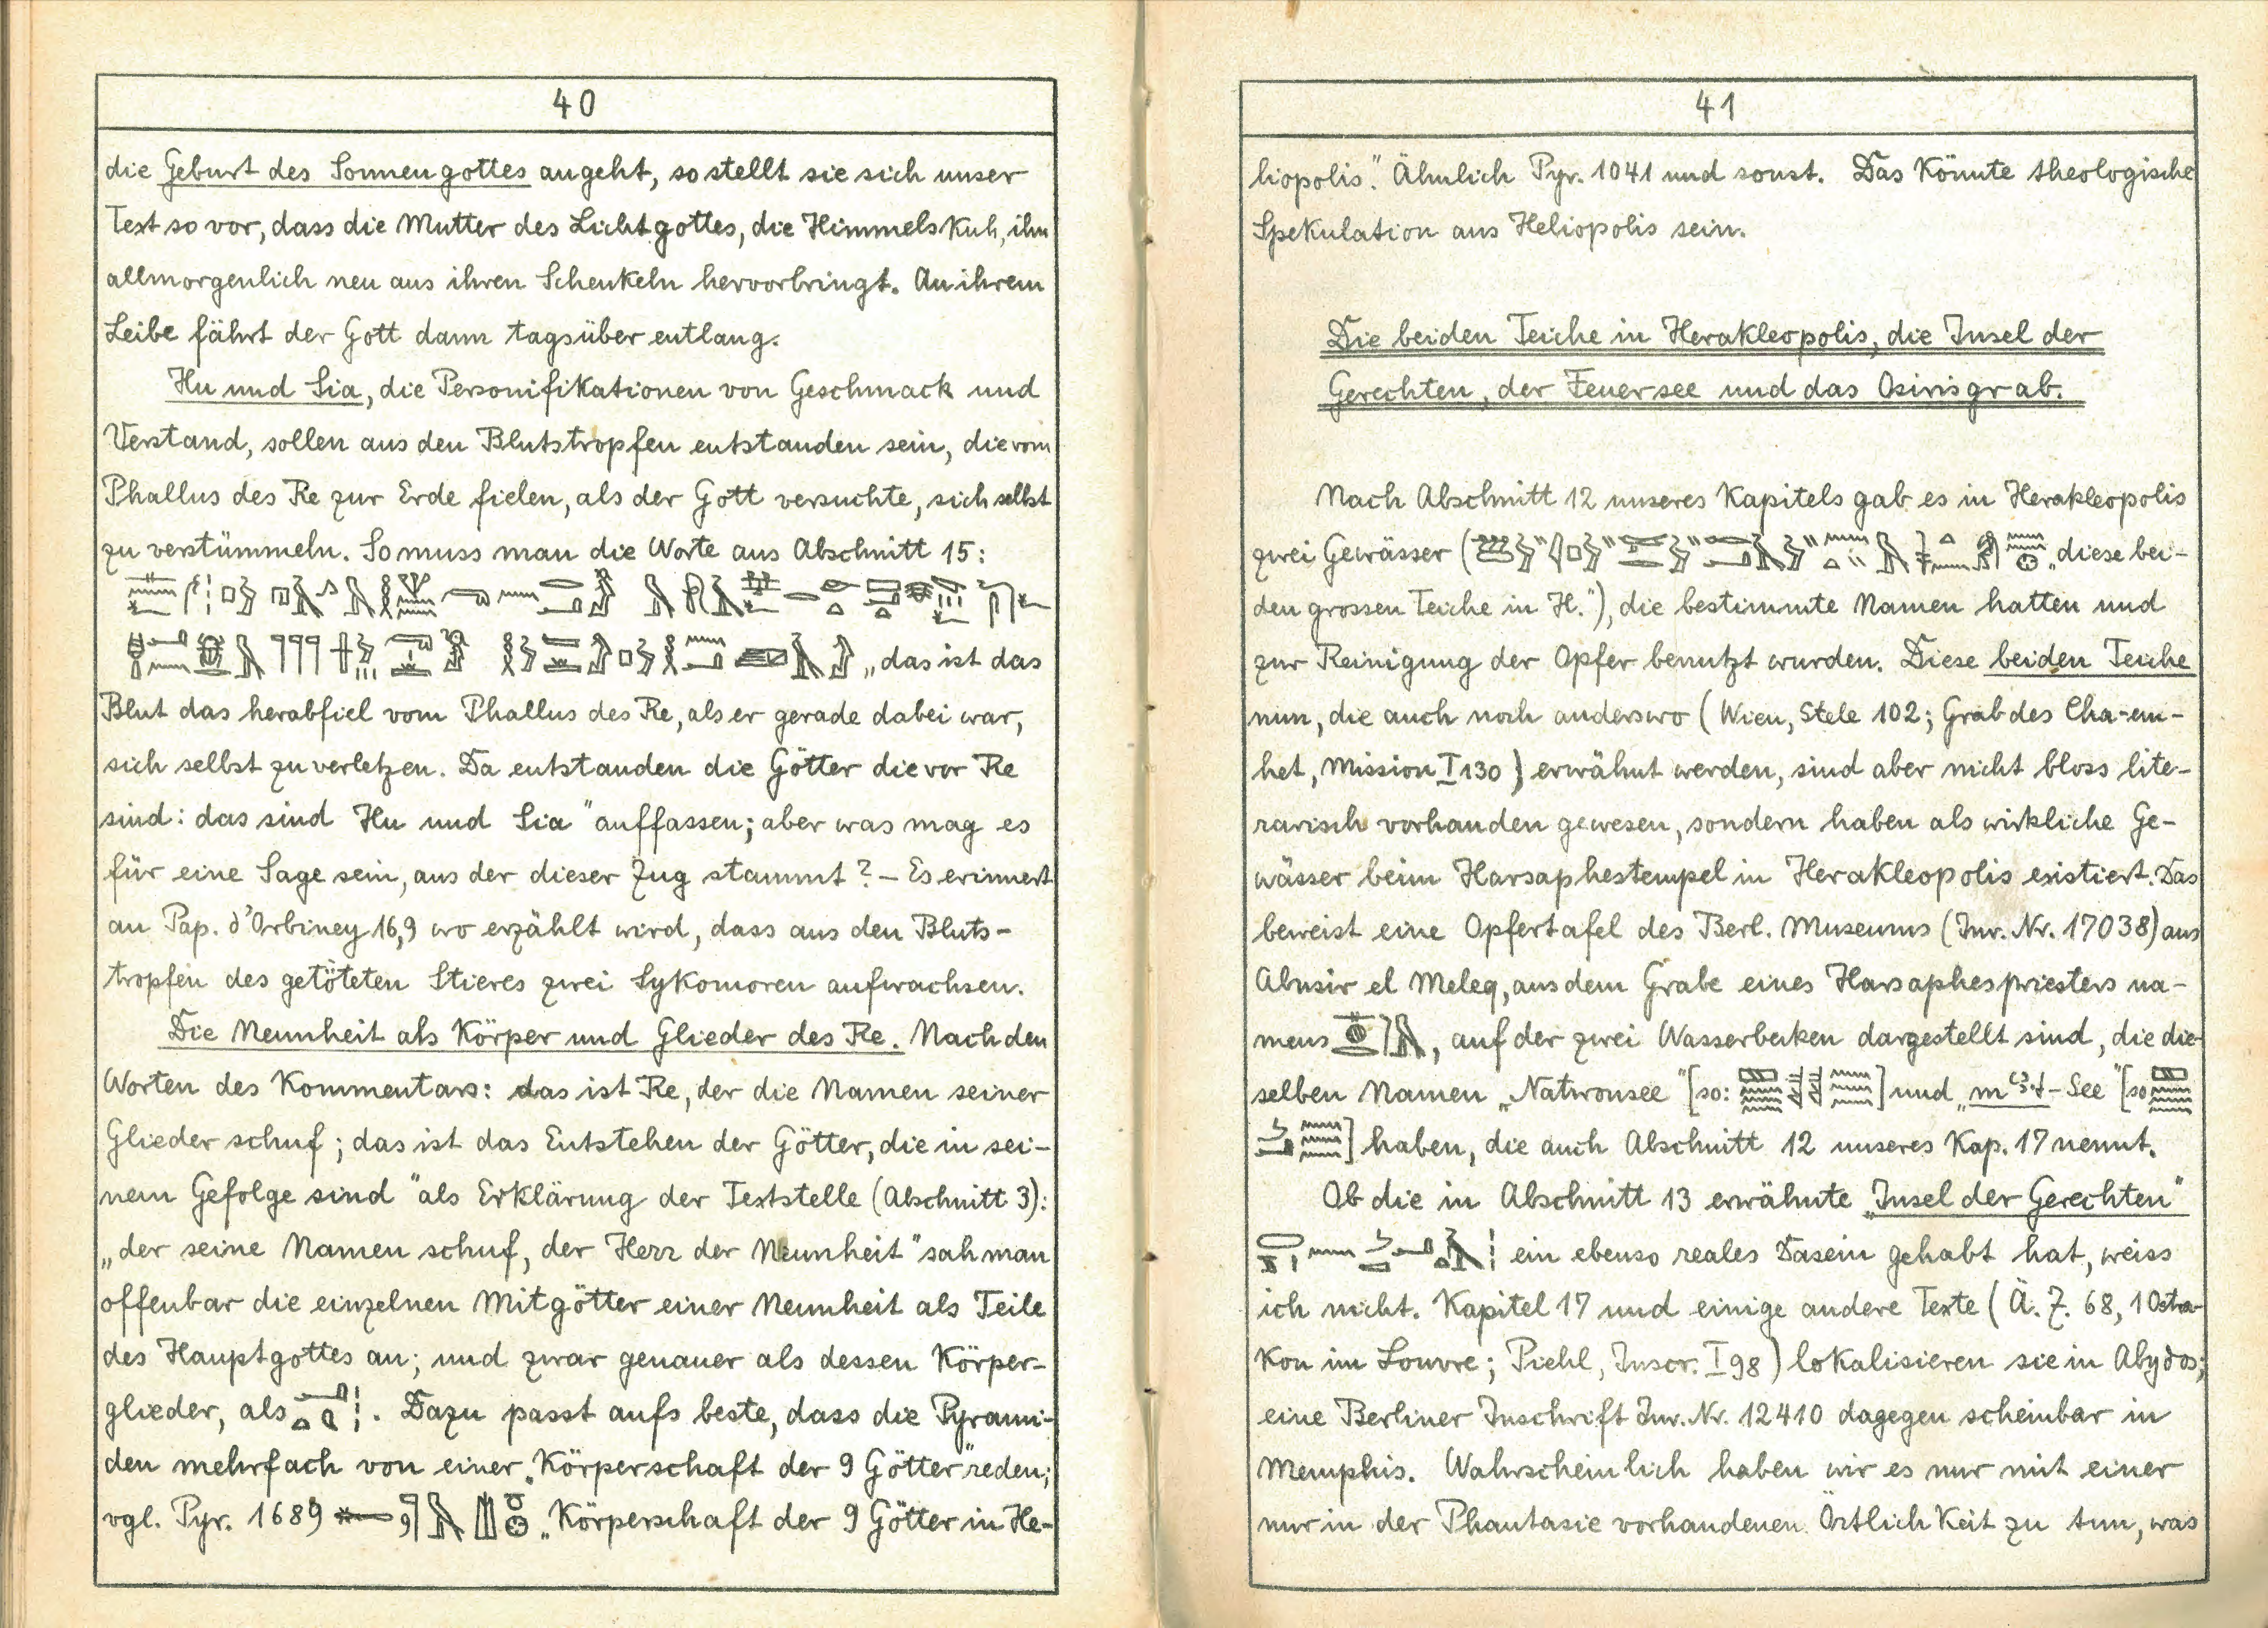 40
die Geburt des Sonnengottes angeht, so stellt sie sich unser
Text so vor, dass die Mutter des Lichtgottes, die Himmelskuh, ihn
allmorgenlich neu aus ihren Schenkeln hervorbringt. An ihrem
Leibe fährt der Gott dann tagsüber entlang.
Hu und Sia, die Personifikationen von Geschmack und
Verstand, sollen aus den Blutstropfen entstanden sein, die vom
Phallus des Re zur Erde fielen, als der Gott versuchte, sich selbst
zu verstümmeln. So muss man die Worte aus Abschnitt 15:
„das ist das
Blut das herabfiel vom Phallus des Re, als er gerade dabei war,
sich selbst zu verletzen. Da entstanden die Götter die vor Re
sind: das sind Hu und Sia" auffassen; aber was mag es
für eine Sage sein, aus der dieser Zug stammt? – Es erinnert
an Pap. d'Orbiney 16,9 wo erzählt wird, dass aus den Bluts-
tropfen des getöteten Stieres zwei Sykomoren aufwachsen.
Die Neunheit als Körper und Glieder des Re. Nach den
Worten des Kommentars: das ist Re, der die Namen seiner
Glieder schuf; das ist das Entstehen der Götter, die in sei-
nem Gefolge sind" als Erklärung der Textstelle (Abschnitt 3):
„der seine Namen schuf, der Herr der Neunheit" sah man
offenbar die einzelnen Mitgötter einer Neunheit als Teile
des Hauptgottes an; und zwar genauer als dessen Körper-
glieder, als . Dazu passt aufs beste, dass die Pyrami-
den mehrfach von einer „Körperschaft der 9 Götter" reden;
vgl. Pyr. 1689 „Körperschaft der 9 Götter in He-
41
liopolis". Ähnlich Pyr. 1041 und sonst. Das könnte theologische
Spekulation aus Heliopolis sein.
Die beiden Teiche in Herakleopolis, die Insel der
Gerechten, der Feuersee und das Osirisgrab.
Nach Abschnitt 12 unseres Kapitels gab es in Herakleopolis
zwei Gewässer ( „diese bei-
den grossen Teiche in H."), die bestimmte Namen hatten und
zur Reinigung der Opfer benutzt wurden. Diese beiden Teiche
nun, die auch noch anderswo (Wien, Stele 102; Grab des Cha-em-
het, Mission I 130) erwähnt werden, sind aber nicht bloss lite-
rarisch vorhanden gewesen, sondern haben als wirkliche Ge-
wässer beim Harsaphestempel in Herakleopolis existiert. Das
beweist eine Opfertafel des Berl. Museums (Inv. Nr. 17038) aus
Abusir el Meleq, aus dem Grabe eines Harsaphespriesters na-
mens , auf der zwei Wasserbecken dargestellt sind, die die-
selben Namen „Natronsee" [so: ] und „mꜣꜥt-See" [so
] haben, die auch Abschnitt 12 unseres Kap. 17 nennt.
Ob die in Abschnitt 13 erwähnte „Insel der Gerechten"
ein ebenso reales Dasein gehabt hat, weiss
ich nicht. Kapitel 17 und einige andere Texte (Ä. Z. 68, 1 Ostra-
kon im Louvre; Piehl, Inscr. I 98) lokalisieren sie in Abydos;
eine Berliner Inschrift Inv. Nr. 12410 dagegen scheinbar in
Memphis. Wahrscheinlich haben wir es nur mit einer
nur in der Phantasie vorhandenen Örtlichkeit zu tun, was